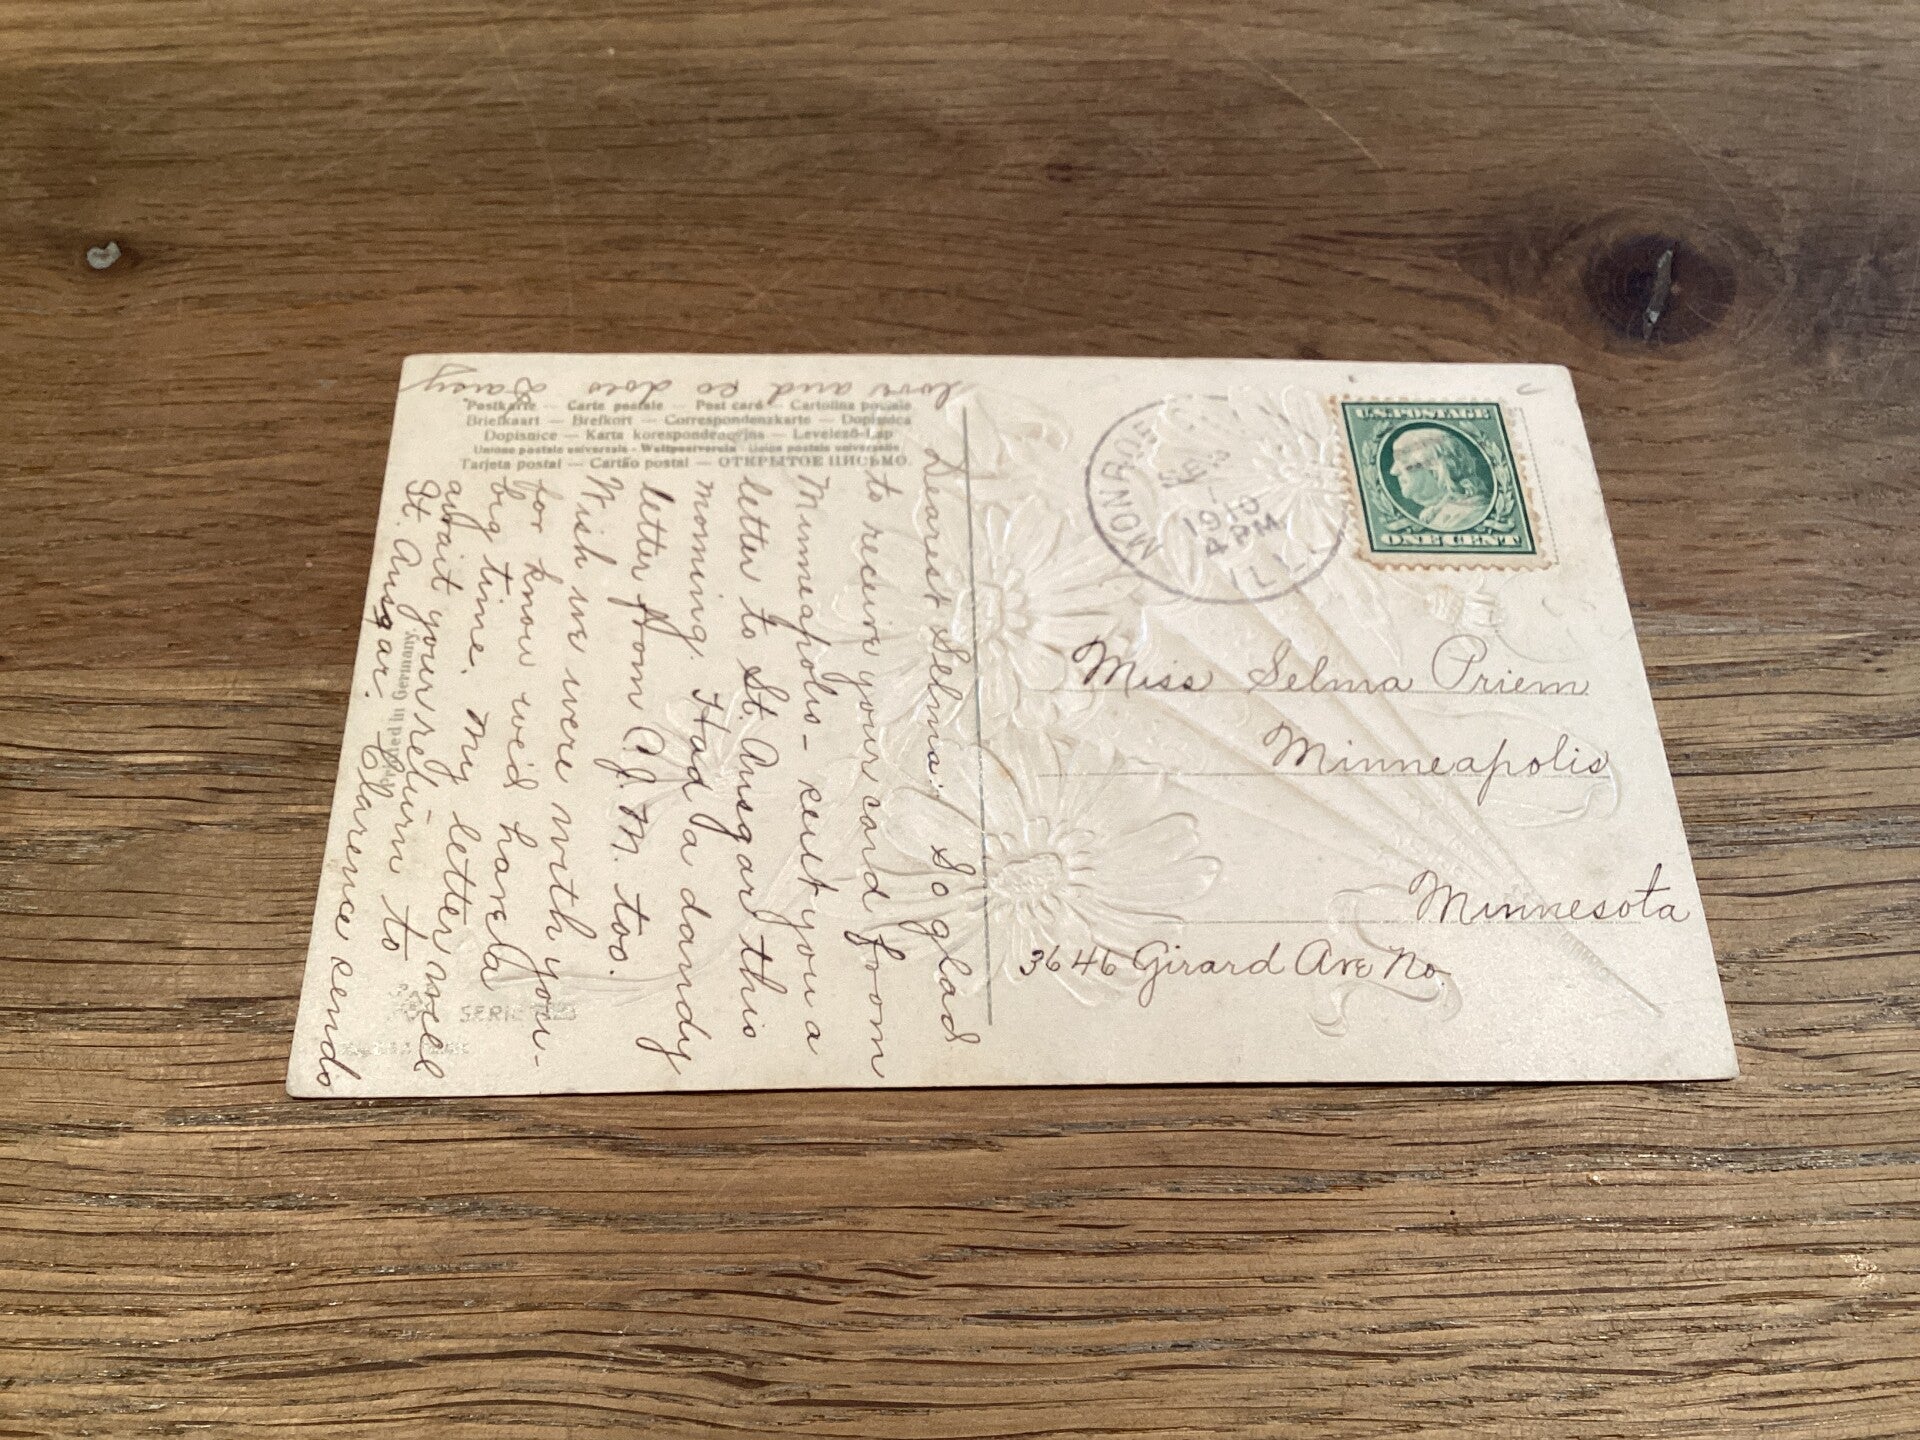 Postkarte — Carte postale — Post card — Cartolina postale
Briefkaart — Brefkort — Correspondenzkarte — Dopisnica
Dopisnice — Karta korespondencyjna — Levelező-Lap
Unione postale universale - Weltpostverein - Union postale universelle
Tarjeta postal — Cartão postal — ОТКРЫТОЕ ПИСЬМО.
Dearest Selma: So glad
to receive your card from
Minneapolis - sent you a
letter to St. Ansgar this
morning. Had a dandy
letter from A. J. M. too.
Wish we were with you -
for know we'd have a
big time. My letter will
await your return to
St. Ansgar. Clarence sends
love and so does Daisy
Printed in Germany.
SERIE
MONROE
SEP
1910
4 PM
ILL.
U.S. POSTAGE
ONE CENT
Miss Selma Priem
Minneapolis
Minnesota
3646 Girard Ave No.